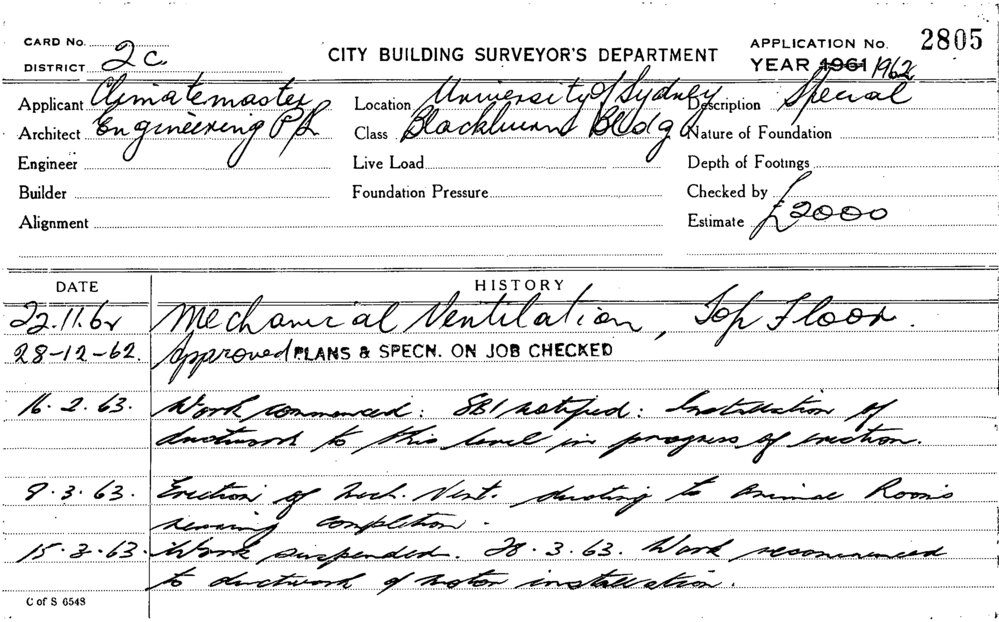 CARD No.
DISTRICT 2c
CITY BUILDING SURVEYOR'S DEPARTMENT
APPLICATION No. 2805
YEAR 1961 1962
Applicant Climatemaster
Location University of Sydney
Description Special
Architect Engineering P/L
Class Blackburn Bldg
Nature of Foundation
Engineer
Live Load
Depth of Footings
Builder
Foundation Pressure
Checked by
Alignment
Estimate £2000
DATE HISTORY
22.11.62 Mechanical Ventilation, Top Floor.
28-12-62. Approved PLANS & SPECN. ON JOB CHECKED
16.2.63. Work commenced: SBI notified: Installation of
ductwork to this level in progress of erection.
9.3.63. Erection of Mech. Vent. ducting to Animal Rooms
nearing completion.
15.3.63. Work suspended. 28.3.63. Work recommenced
to ductwork & motor installation.
C of S 6548